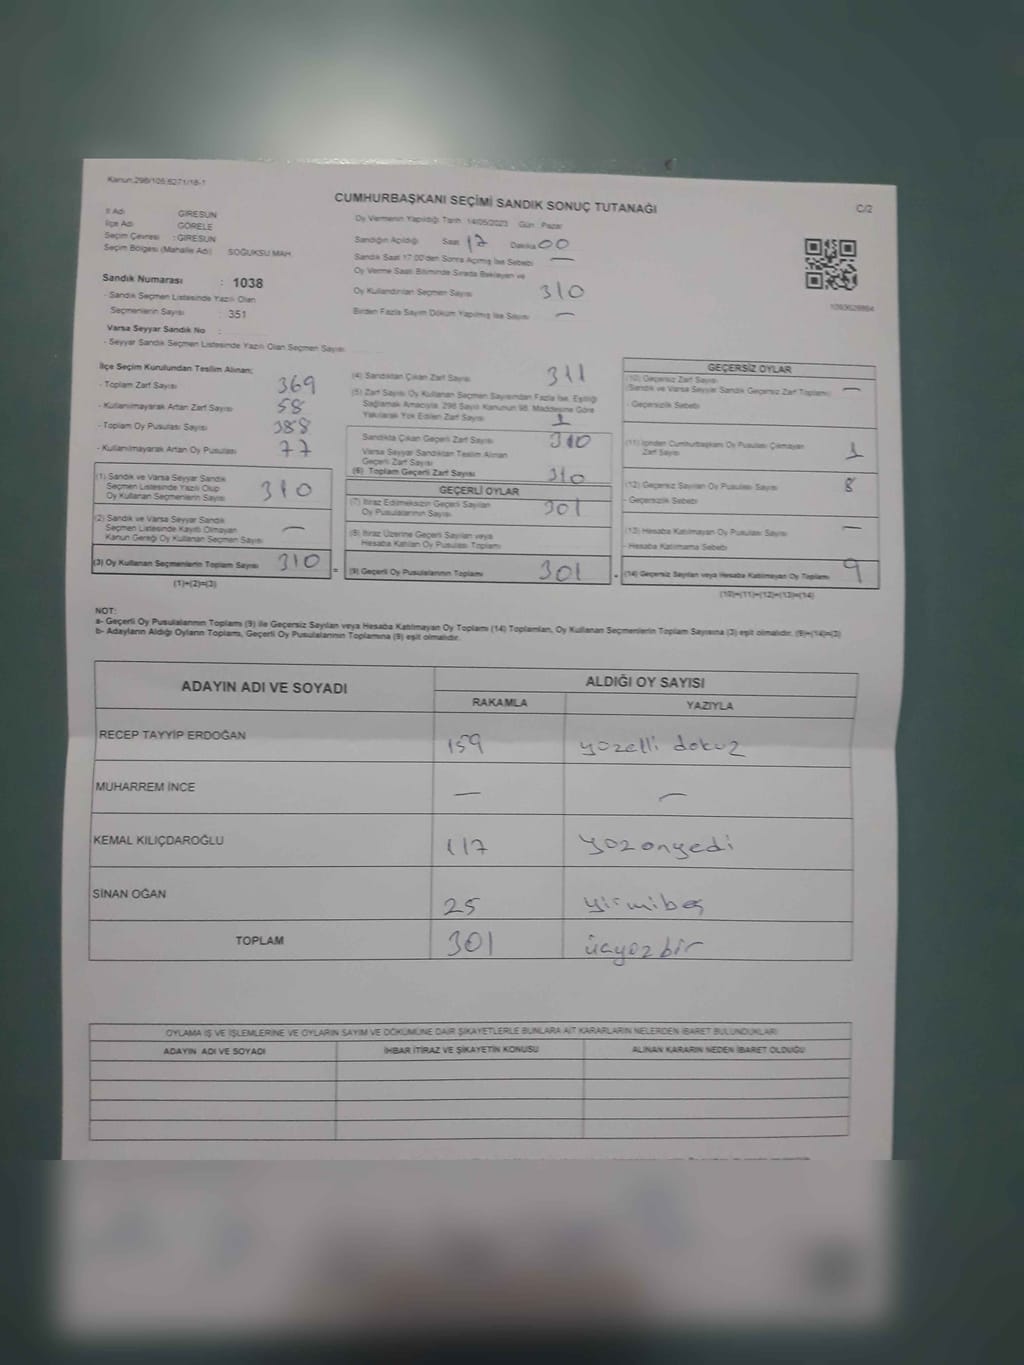 Kanun:298/105,6271/18-1
CUMHURBAŞKANI SEÇİMİ SANDIK SONUÇ TUTANAĞI
C/2
İl Adı GİRESUN
İlçe Adı GÖRELE
Seçim Çevresi : GİRESUN
Seçim Bölgesi (Mahalle Adı) SOĞUKSU MAH.
Sandık Numarası : 1038
- Sandık Seçmen Listesinde Yazılı Olan
Seçmenlerin Sayısı : 351
Varsa Seyyar Sandık No :
- Seyyar Sandık Seçmen Listesinde Yazılı Olan Seçmen Sayısı
Oy Vermenin Yapıldığı Tarih 14/05/2023 Gün : Pazar
Sandığın Açıldığı Saat 17 Dakika 00
Sandık Saat 17.00'den Sonra Açılmış İse Sebebi —
Oy Verme Saati Bitiminde Sırada Bekleyen ve
Oy Kullandırılan Seçmen Sayısı 310
Birden Fazla Sayım Döküm Yapılmış İse Sayısı —
İlçe Seçim Kurulundan Teslim Alınan;
- Toplam Zarf Sayısı 369
- Kullanılmayarak Artan Zarf Sayısı 58
- Toplam Oy Pusulası Sayısı 388
- Kullanılmayarak Artan Oy Pusulası 77
(1) Sandık ve Varsa Seyyar Sandık
Seçmen Listesinde Yazılı Olup
Oy Kullanan Seçmenlerin Sayısı 310
(2) Sandık ve Varsa Seyyar Sandık
Seçmen Listesinde Kayıtlı Olmayan
Kanun Gereği Oy Kullanan Seçmen Sayısı —
(3) Oy Kullanan Seçmenlerin Toplam Sayısı 310
(1)+(2)=(3)
(4) Sandıktan Çıkan Zarf Sayısı 311
(5) Zarf Sayısı Oy Kullanan Seçmen Sayısından Fazla İse, Eşitliği
Sağlamak Amacıyla, 298 Sayılı Kanunun 98. Maddesine Göre
Yakılarak Yok Edilen Zarf Sayısı 1
Sandıkta Çıkan Geçerli Zarf Sayısı 310
Varsa Seyyar Sandıktan Teslim Alınan
Geçerli Zarf Sayısı
(6) Toplam Geçerli Zarf Sayısı 310
GEÇERLİ OYLAR
(7) İtiraz Edilmeksizin Geçerli Sayılan
Oy Pusulalarının Sayısı 301
(8) İtiraz Üzerine Geçerli Sayılan veya
Hesaba Katılan Oy Pusulası Toplamı
= (9) Geçerli Oy Pusulalarının Toplamı 301
GEÇERSİZ OYLAR
(10) Geçersiz Zarf Sayısı
(Sandık ve Varsa Seyyar Sandık Geçersiz Zarf Toplamı) —
- Geçersizlik Sebebi
(11) İçinden Cumhurbaşkanı Oy Pusulası Çıkmayan
Zarf Sayısı 1
(12) Geçersiz Sayılan Oy Pusulası Sayısı 8
- Geçersizlik Sebebi
(13) Hesaba Katılmayan Oy Pusulası Sayısı —
- Hesaba Katılmama Sebebi
+ (14) Geçersiz Sayılan veya Hesaba Katılmayan Oy Toplamı 9
(10)+(11)+(12)+(13)=(14)
NOT:
a- Geçerli Oy Pusulalarının Toplamı (9) ile Geçersiz Sayılan veya Hesaba Katılmayan Oy Toplamı (14) Toplamları, Oy Kullanan Seçmenlerin Toplam Sayısına (3) eşit olmalıdır. (9)+(14)=(3)
b- Adayların Aldığı Oyların Toplamı, Geçerli Oy Pusulalarının Toplamına (9) eşit olmalıdır.
ADAYIN ADI VE SOYADI ALDIĞI OY SAYISI
RAKAMLA YAZIYLA
RECEP TAYYİP ERDOĞAN 159 yüzelli dokuz
MUHARREM İNCE — —
KEMAL KILIÇDAROĞLU 117 yüzonyedi
SİNAN OĞAN 25 yirmibeş
TOPLAM 301 üçyüzbir
OYLAMA İŞ VE İŞLEMLERİNE VE OYLARIN SAYIM VE DÖKÜMÜNE DAİR ŞİKAYETLERLE BUNLARA AİT KARARLARIN NELERDEN İBARET BULUNDUKLARI
ADAYIN ADI VE SOYADI İHBAR İTİRAZ VE ŞİKAYETİN KONUSU ALINAN KARARIN NEDEN İBARET OLDUĞU